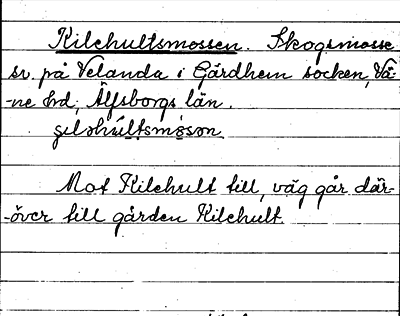 Kilehultsmossen. Skogsmosse
sv. på Velanda i Gärdhem socken, Vä-
-ne hrd, Älfsborgs län.

Mot Kilehult till, väg går där-
-över till gården Kilehult